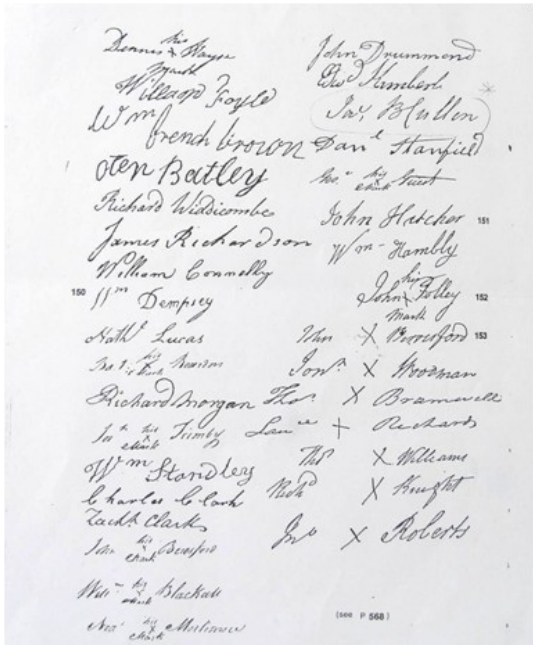 Dennis his X mark Hayse
Willaam Foyle
Wm french brown
Oten Batley
Richard Widdicombe
James Richardson
William Connelly
150 Wm Dempsey
Nathl Lucas
his X Mark
Richard Morgan
his X Mark Trimby
Wm Standley
Charles Clark
Zachh Clark
John his X Mark Beresford
Willm his X Mark Blackall
Noah his X Mark Mortimer
John Drummond
Edwd Kimberl
Jas B Cullen
Danl Stanfield
Geo. his X Mark Guest
John Hatcher 151
Wm Hambly
John his X Mark Folley 152
John X Beresford 153
Jonn X Woodman
Thos X Bramwell
Lawce X Richards
Thos X Williams
Richd X Knight
Jno X Roberts
(see P 568)